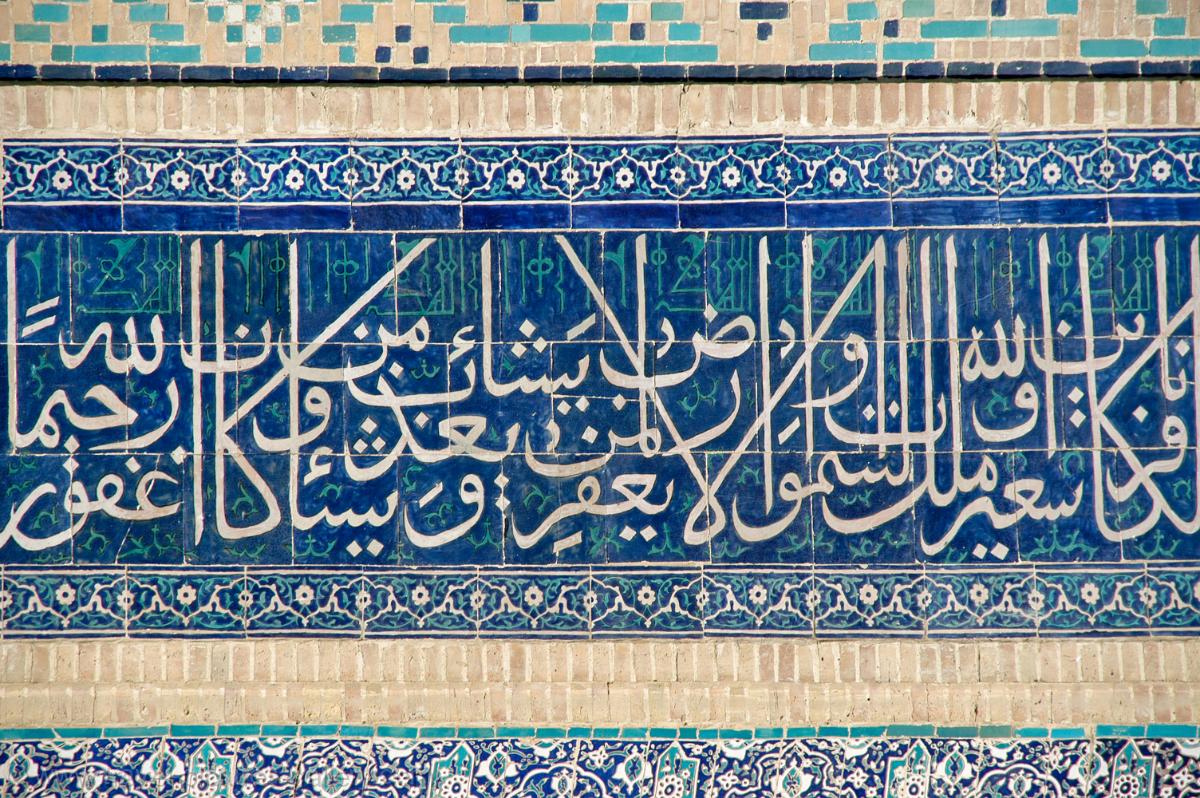 للكفرين سعيرا ولله ملك السموت والارض يغفر لمن يشائ ويعذب من يشائ وكان الله غفورا رحيما